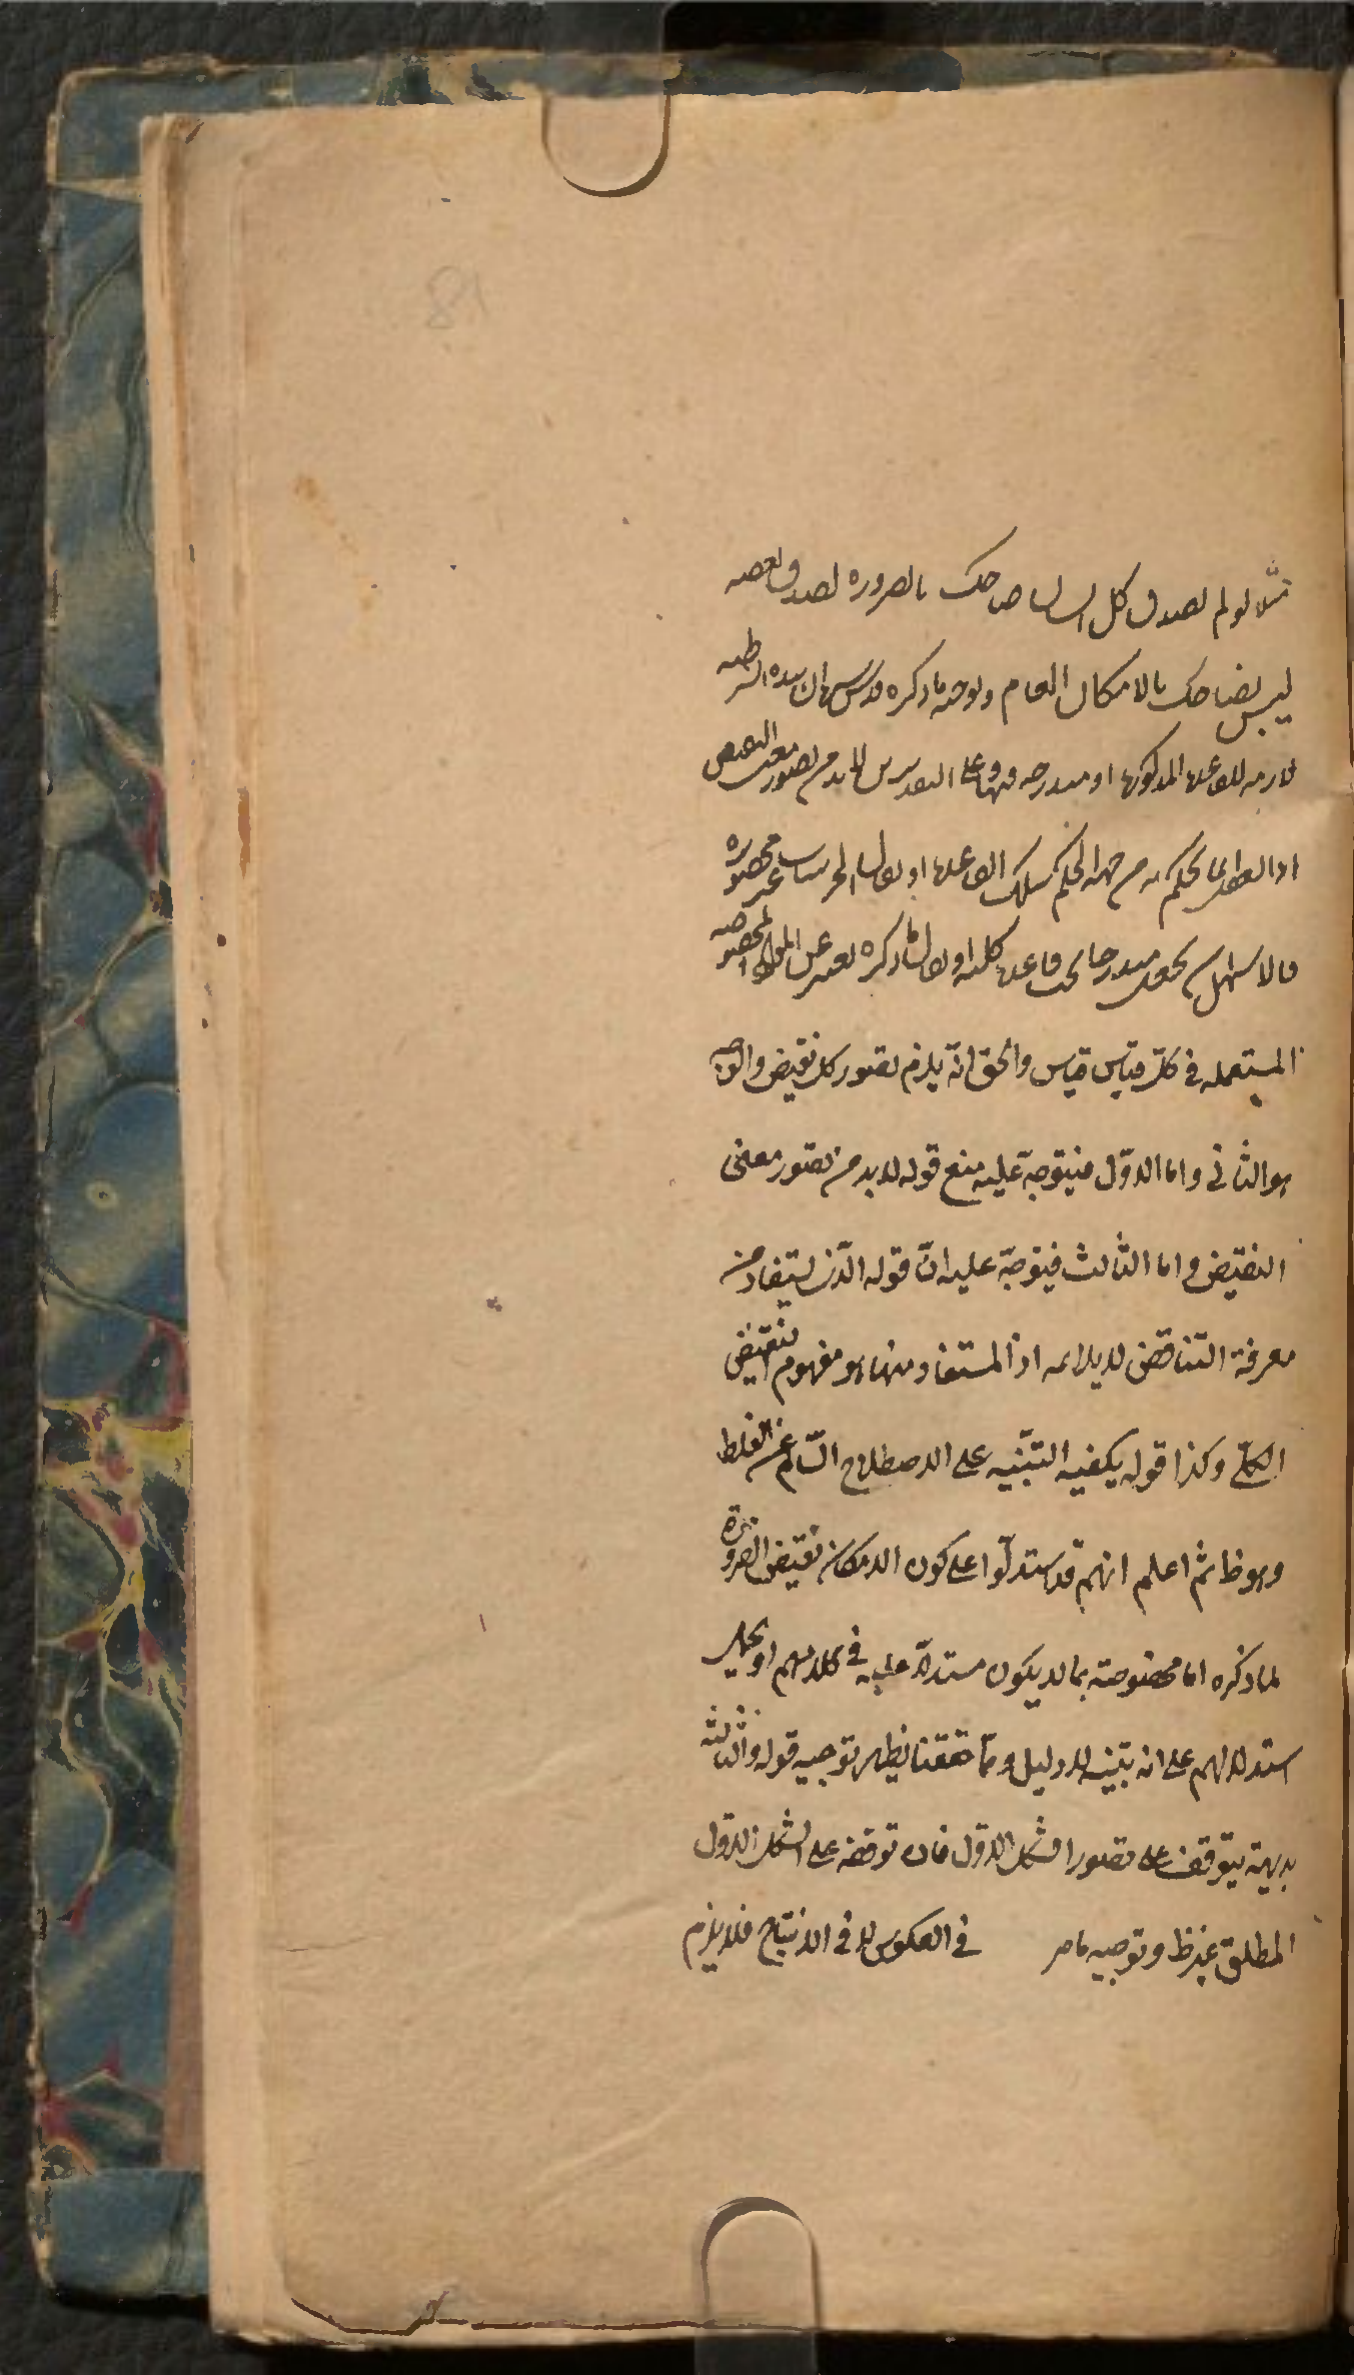 مثلا لو لم يصدق كل انسان ضاحك بالضرورة لصدق نقيضه
ليس بضاحك بالامكان العام وتوجيه ما ذكره قدس سره ان هذه الشرطية
لازمة للقاعدة المذكورة او مندرجة فيها وعلى التقديرين لا بد من تصور معنى النقيض
الحكم من جهة الحكم بتلك القاعدة او يقال الجزئيات غير محصورة
فالاسهل مندرجا تحت قاعدة كلية او يقال ما ذكره المواد المخصوصة
المستعملة في كل قياس قياس والحق انه يلزم تصور كل نقيض والتوجيه
هو الثاني واما الاول فيتوجه عليه منع قوله لا بد من تصور معنى
النقيض واما الثالث فيتوجه عليه ان قوله الذى يستفاد من
معرفة التناقض لا يلائمه اذ المستفاد منها هو مفهوم النقيض
الكلي وكذا قوله يكفيه التنبيه على الاصطلاح السالم عن الغلط
وهو ظ ثم اعلم انهم قد استدلوا على كون الامكان نقيض الضرورة
لما ذكره اما مخصوصة بما لا يكون مستدلا عليه في كلامهم او يحمل
استدلالهم على انه تنبيه لا دليل ومما حققنا يظهر توجيه قوله والثالثة
بديهية يتوقف على تصور الشكل الاول فان توقفه على الشكل الاول
المطلق غير ظ وتوجيه ما مر في العكوس لا في الانتاج فلا يلزم
81